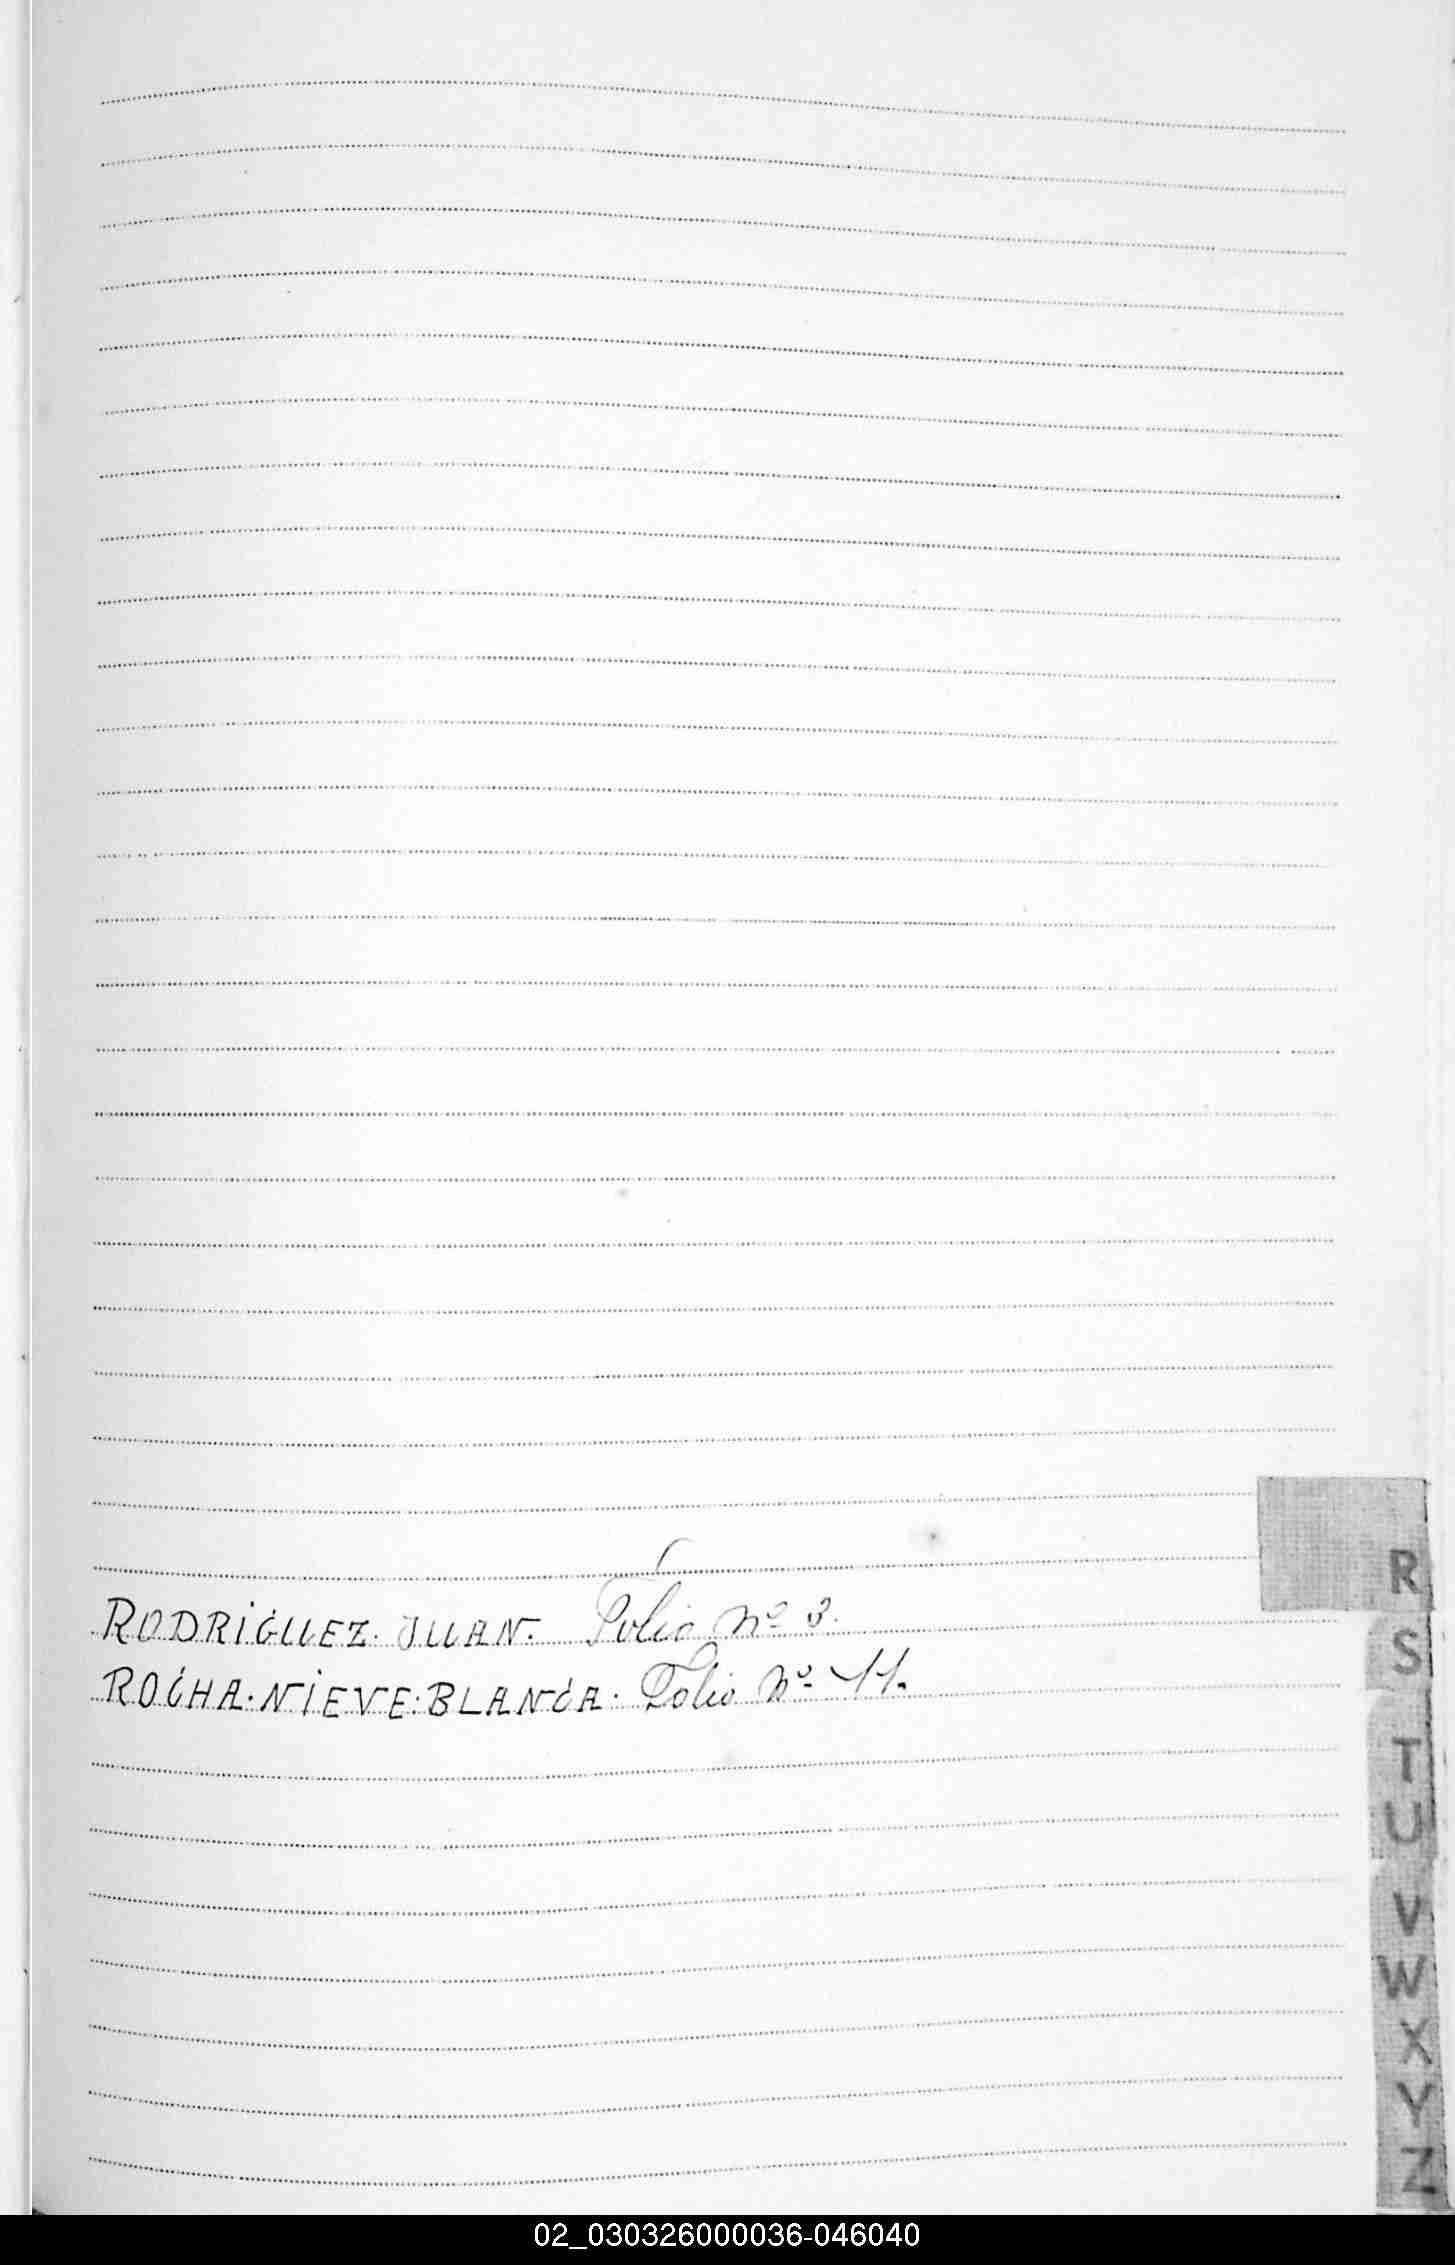 R
RODRIGUEZ. JUAN. Folio Nº 3.
S
ROCHA. NIEVE. BLANCA. Folio Nº 11.
T
U
V
W
X
Y
Z
02_030326000036-046040